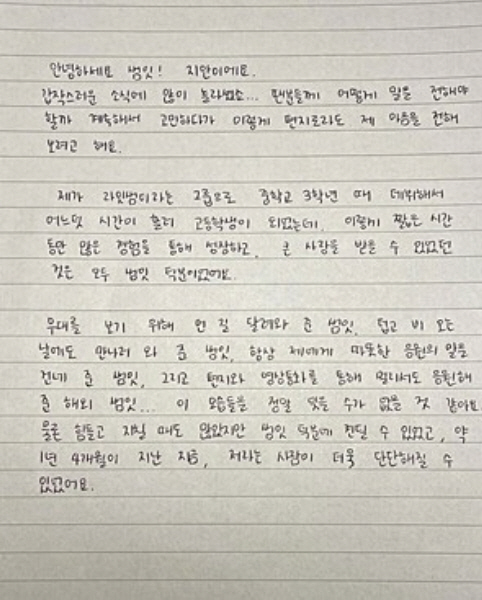 안녕하세요 범잇! 지안이에요.
갑작스러운 소식에 많이 놀라셨죠... 팬분들께 어떻게 말을 전해야
할까 계속해서 고민하다가 이렇게 편지로라도 제 마음을 전해
보려고 해요.
제가 라잇썸이라는 그룹으로 중학교 3학년 때 데뷔해서
어느덧 시간이 흘러 고등학생이 되었는데, 이렇게 짧은 시간
동안 많은 경험을 통해 성장하고, 큰 사랑을 받을 수 있었던
것은 모두 범잇 덕분이었어요.
무대를 보기 위해 먼 길 달려와 준 범잇, 덥고 비 오는
날에도 만나러 와 준 범잇, 항상 제에게 따뜻한 응원의 말을
건네 준 범잇, 그리고 편지와 영상통화를 통해 멀리서도 응원해
준 해외 범잇... 이 모습들을 정말 잊을 수가 없을 것 같아요.
물론 힘들고 지칠 때도 많았지만 범잇 덕분에 견딜 수 있었고, 약
1년 4개월이 지난 지금, 저라는 사람이 더욱 단단해질 수
있었어요.